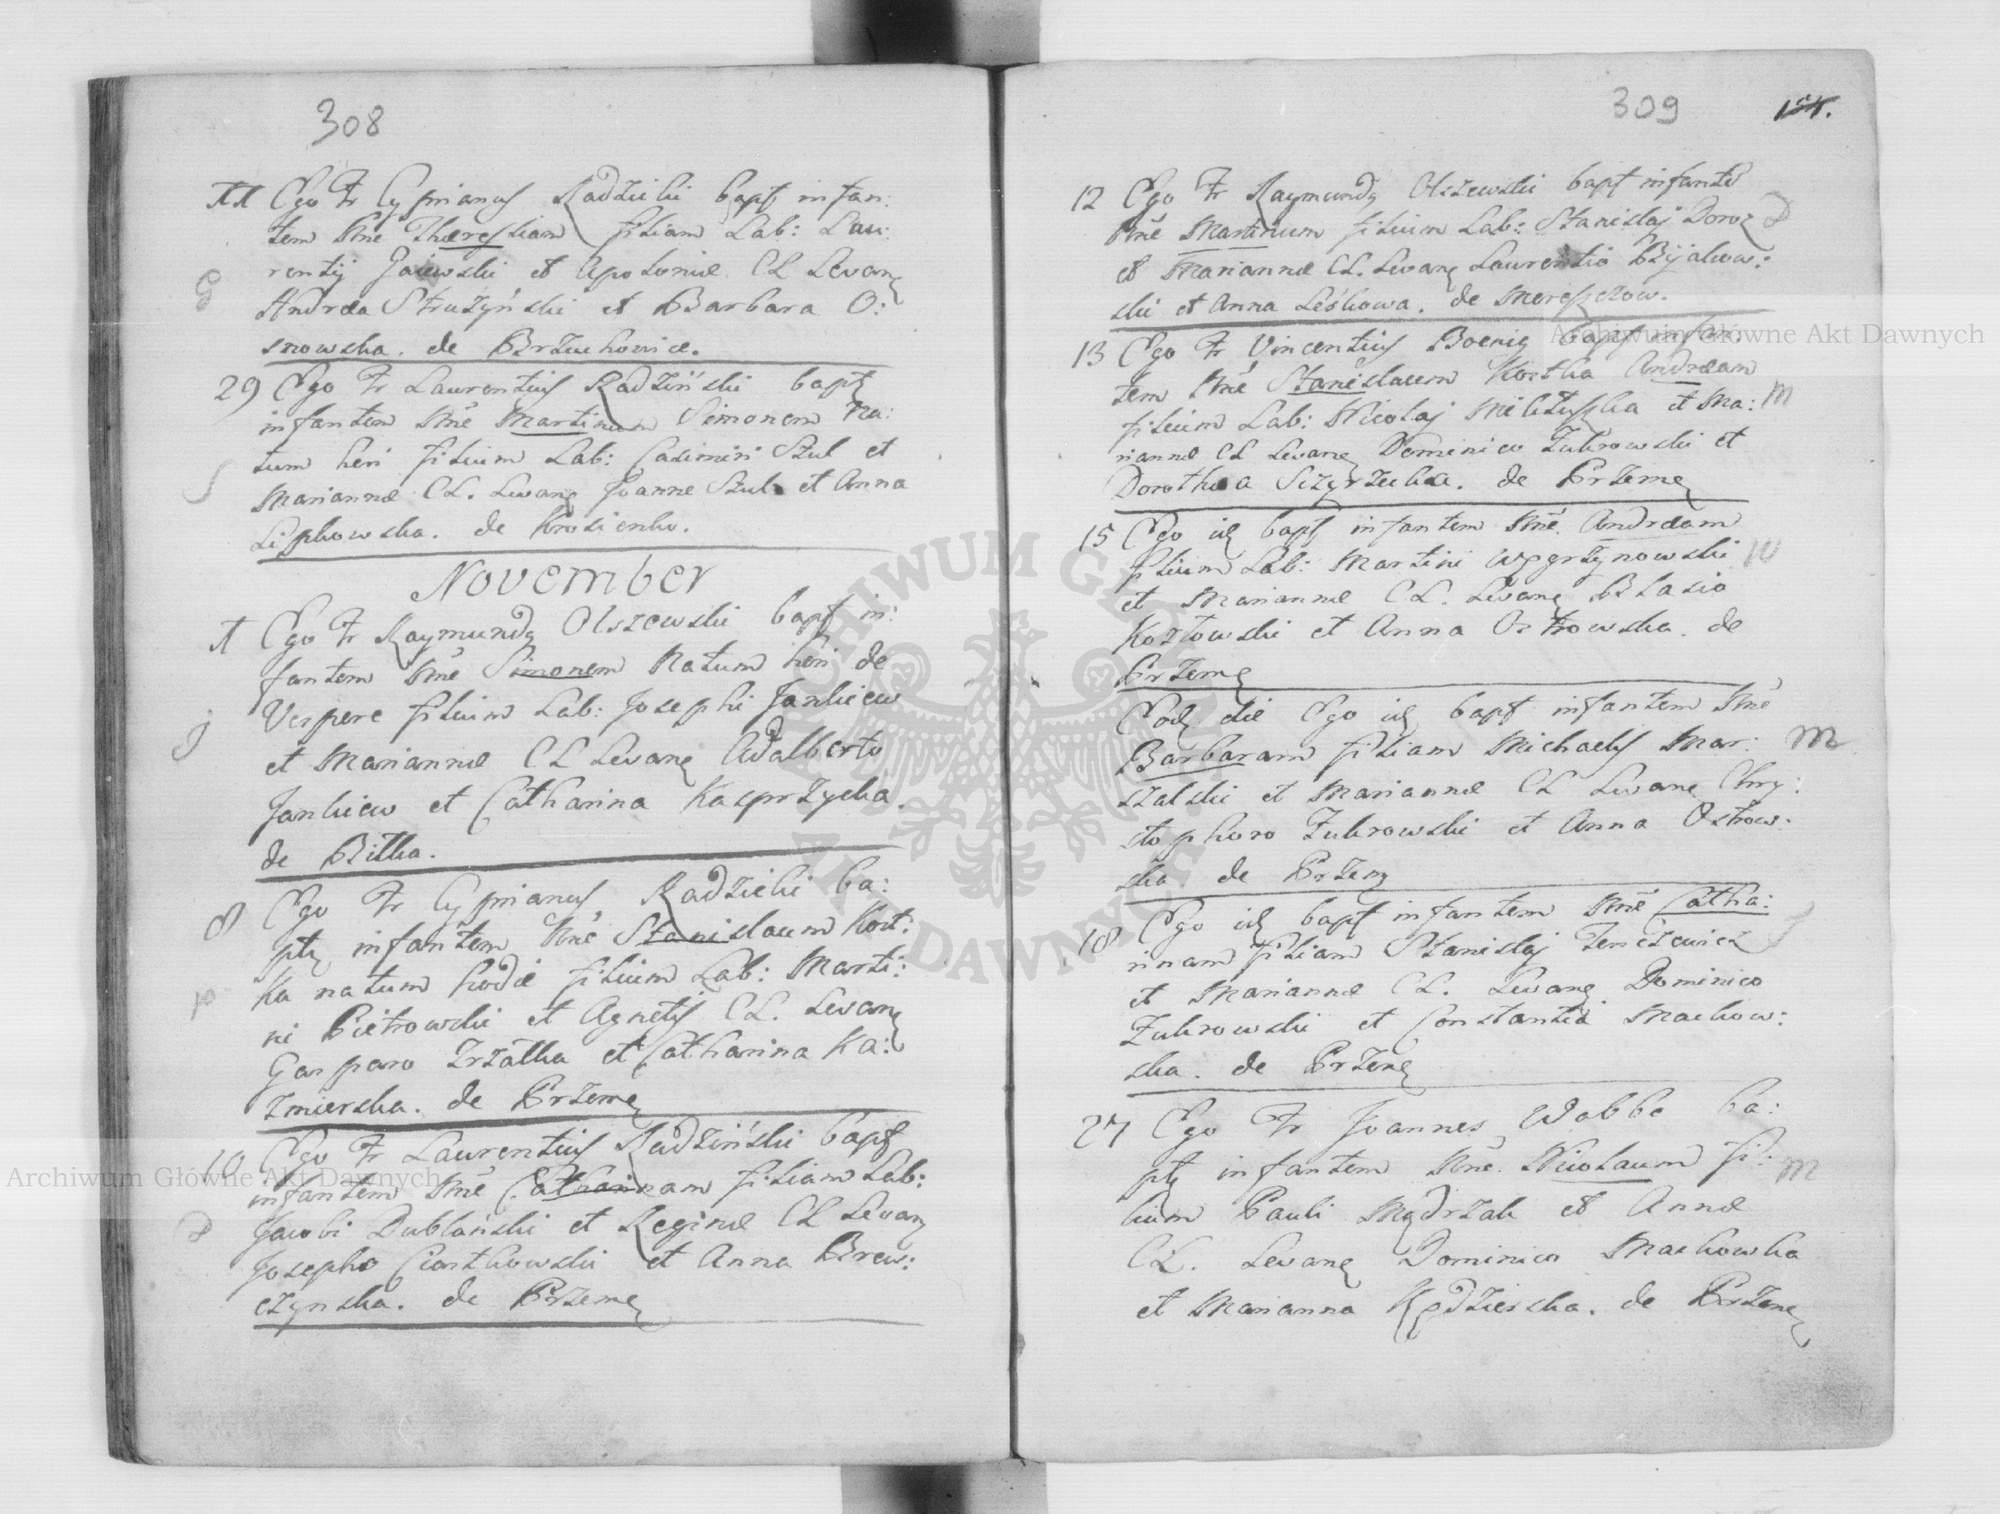 308
11 Ego Fr Cyprianus Radzicki bapt infan:
tem Nne Theressiam filiam Lab: Lau:
rentij Gaiewski et Apoloniæ CL Levanę
G
Andrea Strużyński et Barbara O:
snowska. de Brzuchowice.
29 Ego Fr Laurentius Radziński baptę
infantem Nne Martinum Simonem Na:
tum heri filium Lab: Casimiri Szul et
S
Mariannæ CL. Levanę Joanne Szul et Anna
Lipkowska. de Krosienko.
November
1 Ego Fr Raymundę Olszewski bapt in:
fantem Nne Simonem Natum heri de
Vespere filium Lab: Josephi Jankiew
J
et Mariannæ CL Levanę Adalberto
Jankiew et Catharina Kasprzycka.
de Bitka.
8 Ego Fr Cyprianus Radzicki ba:
ptę infantem Nne Stanislaum Kost:
Ka natum hodie filium Lab: Marti:
p
ni Pietrowski et Agnetis CL. Levanę
Gasparo Trzatka et Catharina Ka:
zmierska. de Przemę
10 Ego Fr Laurentius Radziński bapt
infantem Nne Catharinam filiam Lab:
D
Jacobi Dublański et Reginæ CL Levanę
Josepho Ciastkowski et Anna Brew:
czynska. de Przemę
309
12 Ego Fr Raymundę Olszewski bapt infante
Nne Martinum filium Lab: Stanislaj Doroz D
et Mariannæ CL. Levanę Laurentio Bijakow:
ski et Anna Leśkowa. de Mereszczow.
13 Ego Fr Vincentius Boenig bapt infan:
tem Nne Stanislaum Kostka Andream
filium Lab: Nicolaj Mikituszka et Ma: M
riannæ CL Levanę Dominico Zukrowski et
Dorothea Siżyrzucka. de Przemę
15 Ego idę bapt infantem Nne Andream
filium Lab: Martini Węgrzynowski W
et Mariannæ CL. Levanę Blasio
Kozłowski et Anna Ostrowska. de
Przemę
Eodę die Ego idę bapt infantem Nne
Barbaram filiam Michaelis Mar: M
szalski et Mariannæ CL Levanę Chry:
stophoro Zukrowski et Anna Ostrow:
ska. de Przemę
18 Ego idę bapt infantem Nne Catha:
rinam filiam Stanislaj Jenczewicz J
et Mariannæ CL. Levanę Dominico
Zukrowski et Constantia Mackow:
ska. de Przemę
27 Ego Fr Joannes Wobbe ba:
ptę infantem Nne. Nicolaum fi:
lium Pauli Mądrzak et Annæ M
CL. Levanę Dominico Mackowka
et Marianna Kędzierska. de Przemę
Archiwum Główne Akt Dawnych
Archiwum Główne Akt Dawnych
ARCHIWUM GŁÓWNE AKT DAWNYCH